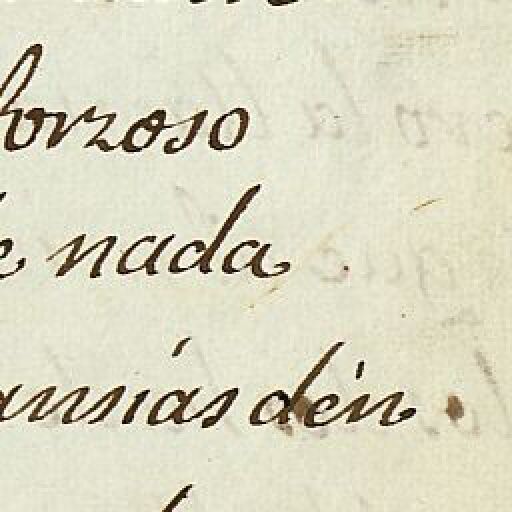 forzoso
e nada
ansiás dén